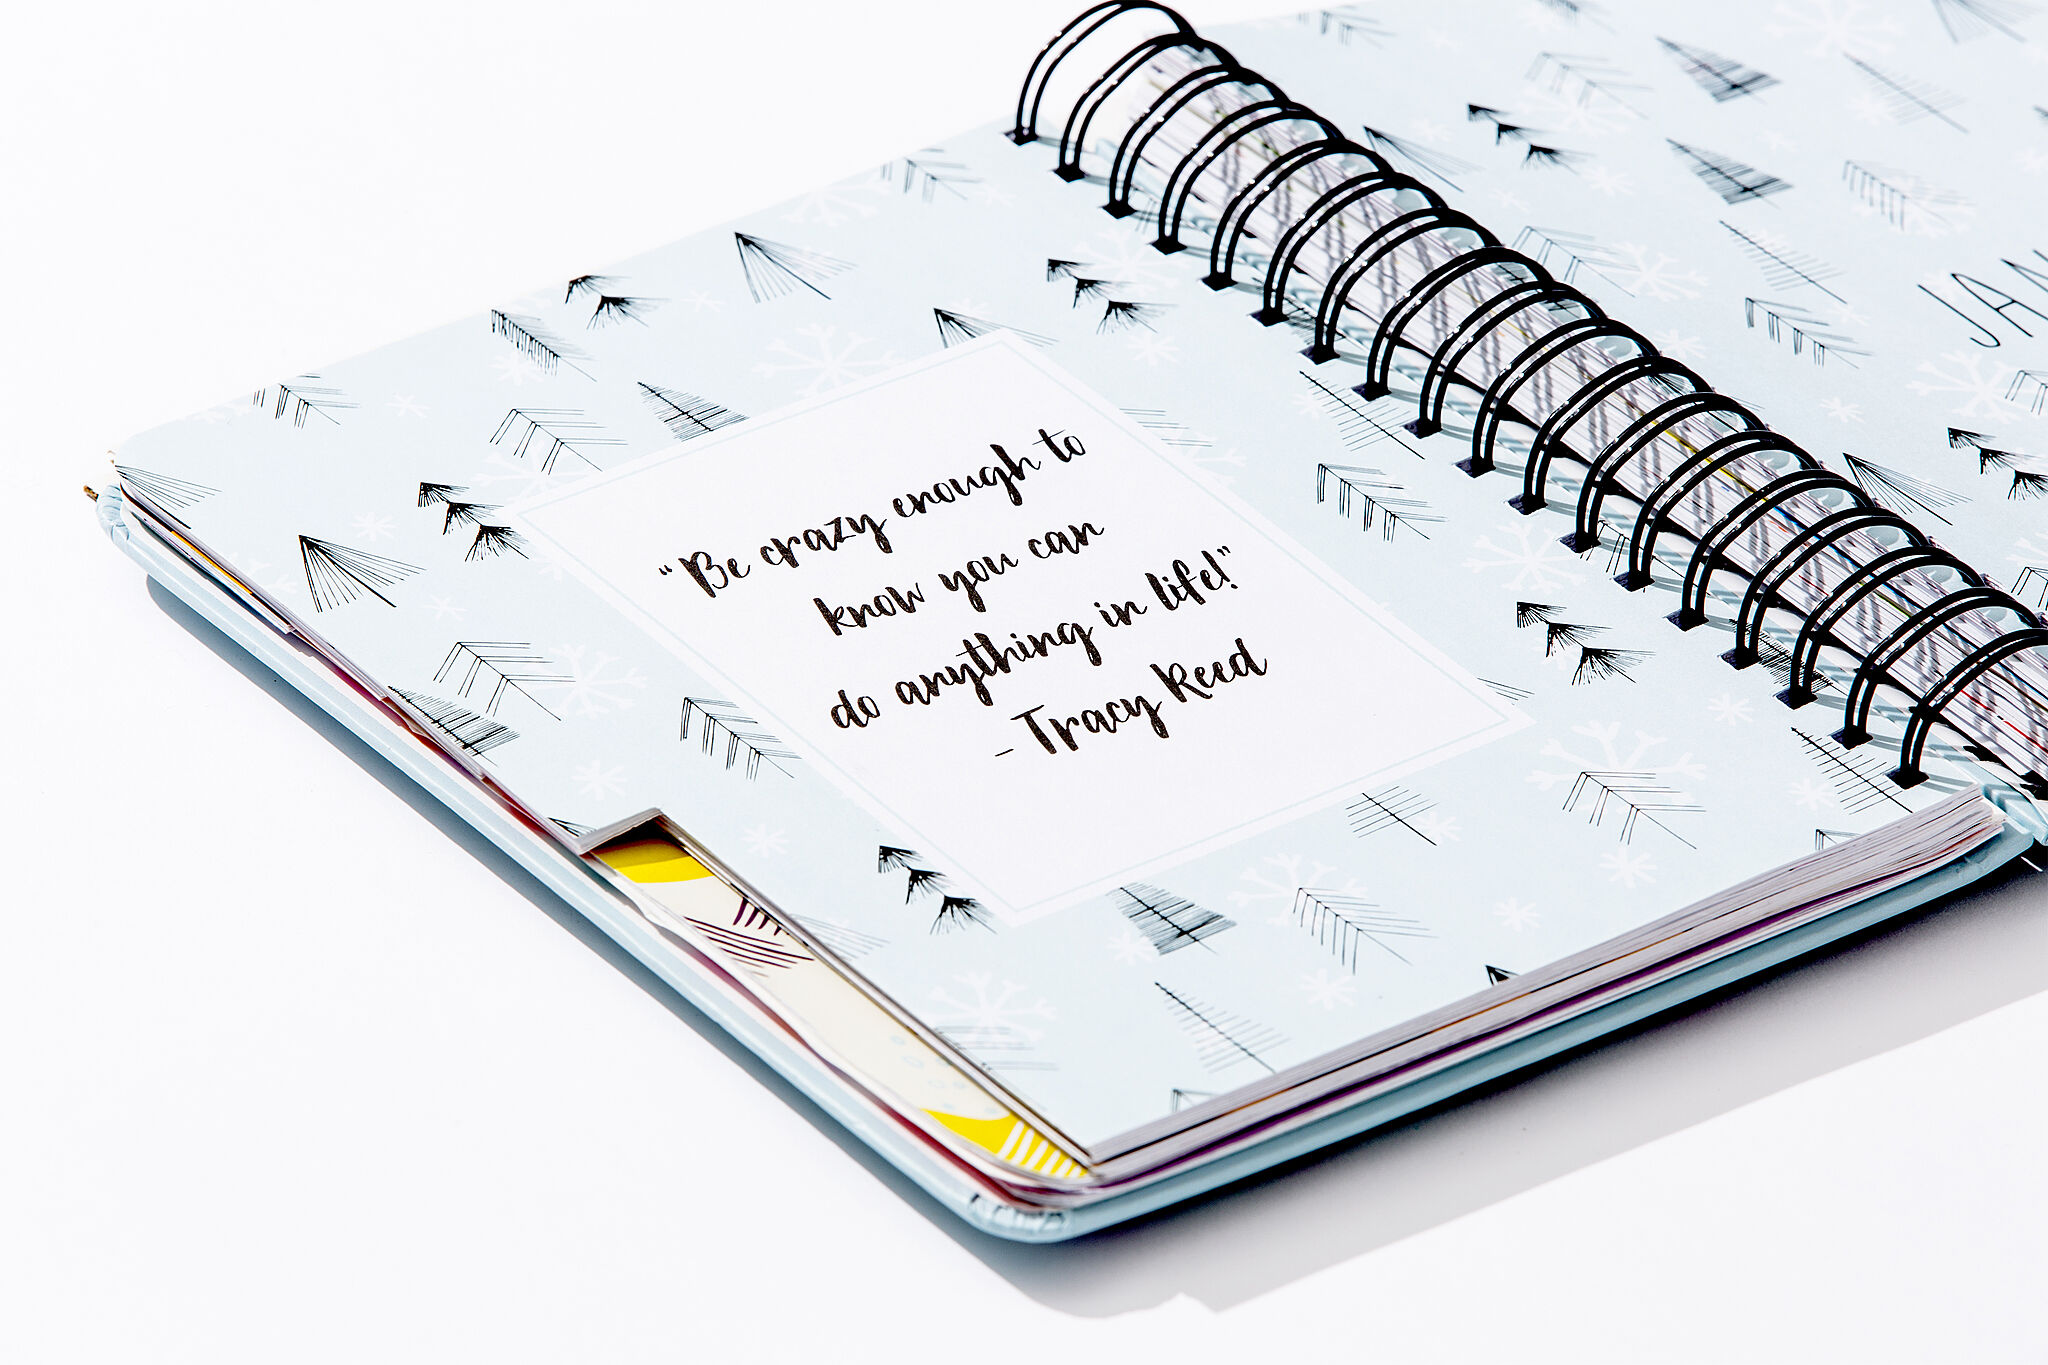 "Be crazy enough to
know you can
do anything in life!"
- Tracy Reed
JAN